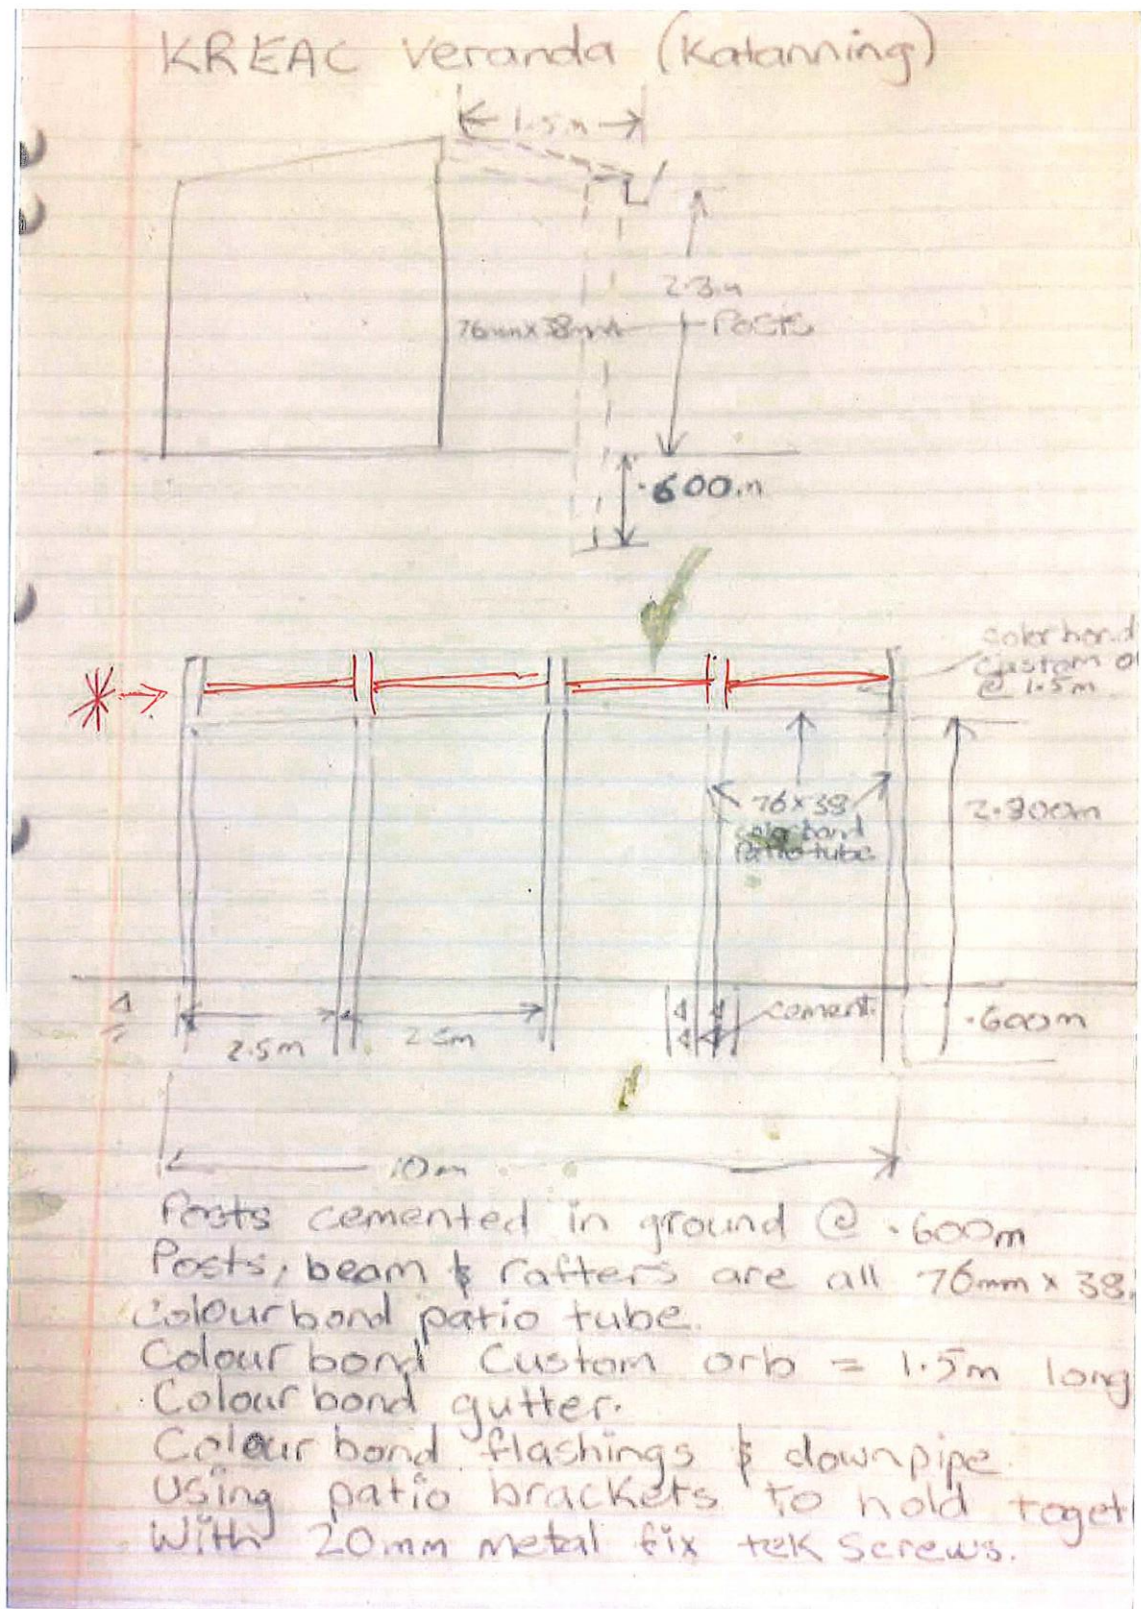 KREAC Veranda (Katanning)
1.5m
2.3m
76mm x 38mm
Posts
.600m
color bond
Custom o
@ 1.5m
76 x 38
color bond
Patio tube
2.300m
cement.
.600m
2.5m
2.5m
10m
Posts cemented in ground @ .600m
Posts, beam & rafters are all 76mm x 38
Colourbond patio tube.
Colour bond Custom orb = 1.5m long
Colour bond gutter.
Colour bond flashings & downpipe.
Using patio brackets to hold toget
With 20mm metal fix tek screws.